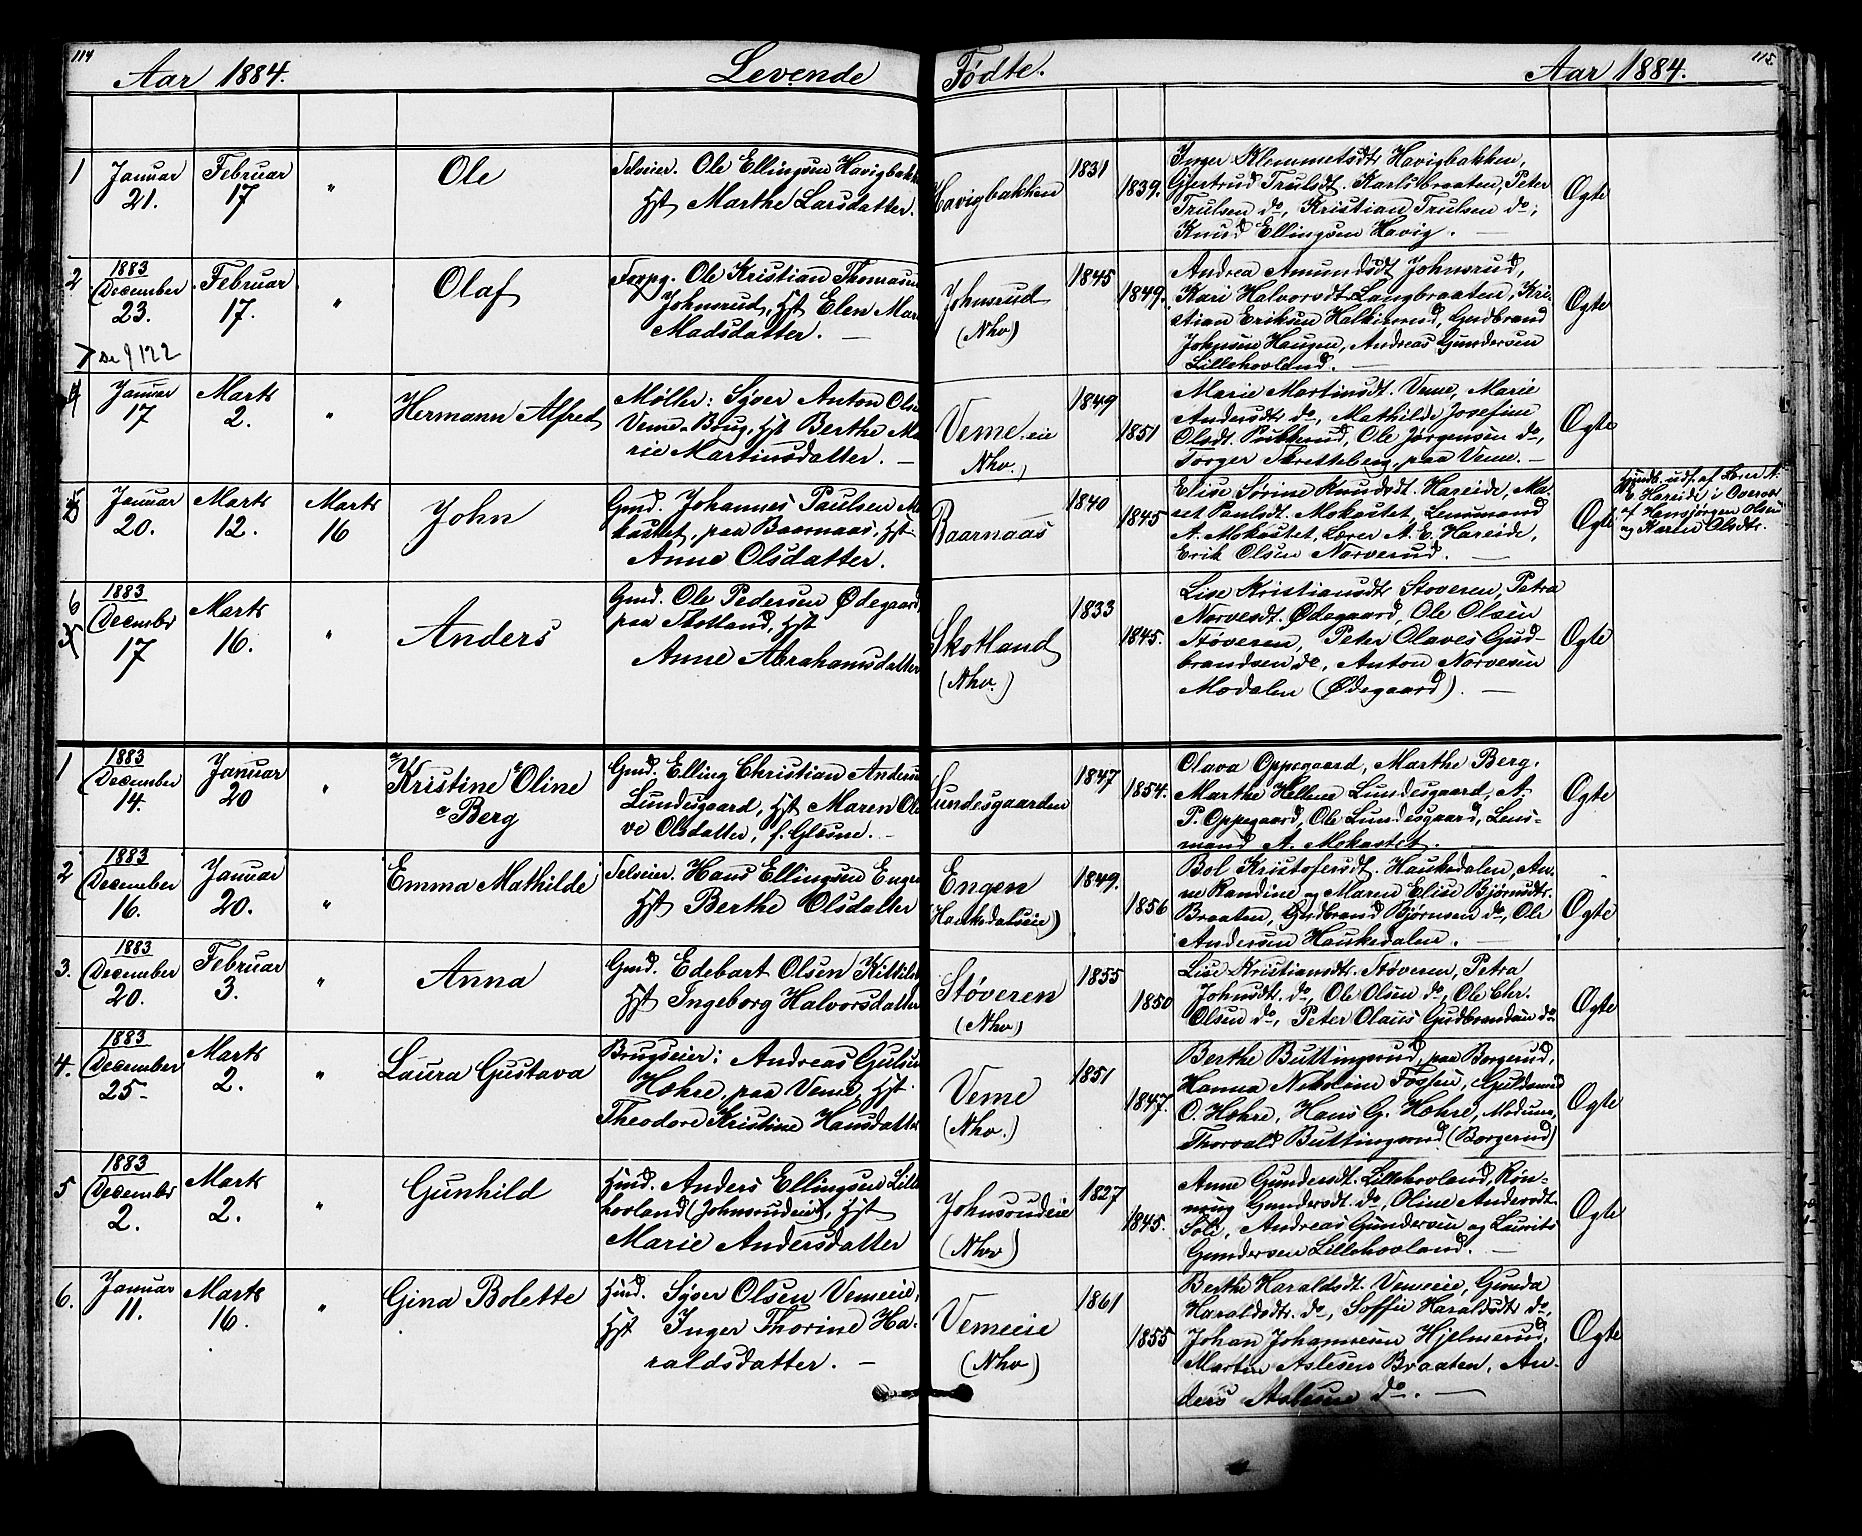 114
Aar 1884.
Levende
Fødte.
Aar 1884.
115.
1
Januar
21.
Februar
17
"
Ole
Selveier. Ole Ellingsen Havigbakk
Hst Marthe Larsdatter.
Havigbakken
1831
1839.
Inger Klemmetsdtr Havigbakken,
Gjertrud Trulsdt. Karlsbraaten, Peter
Trulsen do, Kristian Trulsen do;
Knud Ellingsen Havig. —
Ogte
2
1883
December
23.
Februar
17.
"
Olaf
Forpg. Ole Kristian Thomasen
Johnsrud, Hst Elen Mar
Madsdatter. —
Johnsrud
(Nhv)
1845
1849.
Andrea Amundsdt Johnsrud,
Kari Halvorsdt Langbraaten, Kri-
stian Eriksen Halkinrud, Gudbrand
Johnsen Haugen, Andreas Gundersen
Lillehovland. —
Ogte
se 122
4
Januar
17
Marts
2.
"
Hermann Alfred
Møller: Syver Anton Olse
Veme-Brug, Hst Berthe Ma
rie Martinsdatter. —
Veme-eie
Nhv.)
1849
1851
Marie Martinsdt. Veme, Marie
Andersdtr do, Mathilde Josefine
Olsdt. Putterud, Ole Jørgensen do,
Torger Tretteberg, paa Veme. —
Ogte
5
Januar
20.
Marts
12.
Marts
16
John
Gmd. Johannes Paulsen M
kastet, paa Baarnaas, Hst
Anne Olsdatter.
Baarnaas
1840
1845
Elise Sørine Knudsdt. Hareide, Ma-
ret Paulsdt. Mokastet, Lensmand
A. Mokastet, Lærer A. E. Hareide,
Erik Olsen Norverud. —
Ogte
Hjemdt. udf. af Lærer A.
E. Hareide i Overvær
af Hansjørgen Olsen
og Karen Olsdtr.
6
1883
December
17
Marts
16.
"
Anders
Gmd. Ole Pedersen Ødegaard
paa Skotland, Hst
Anne Abrahamsdatter
Skotland
(Nhv.)
1833
1845.
Lise Kristiansdtr Støveren, Petra
Norvesdt. Ødegaard, Ole Olsen
Støveren, Peter Olaves Gud-
brandsen do, Anton Norvesen
Modalen (Ødegaard). —
Ogte
1
1883
December
14.
Januar
20
"
Kristine Oline
Berg
Gmd. Elling Christian Anders
Lundesgaard, Hst Maren Ol
ve Olsdatter, f. Glesne. —
Lundesgaarden
1847
1854.
Olava Oppegaard, Marthe Berg,
Marthe Hellene Lundesgaard, A.
P. Oppegaard, Ole Lundesgaard, Lens-
mand A. Mokastet. —
Ogte
2
1883
December
16.
Januar
20.
"
Emma Mathilde
Selveier. Hans Ellingsen Enge
Hst Berthe Olsdatter
Engen
(Haukedalseie)
1849.
1856
Bol Kristofersdt. Haukedalen, An-
ne Randine og Maren Elise Bjørnsdtr.
Braaten, Gudbrand Bjørnsen do, Ole
Andersen Haukedalen. —
Ogte
3.
1883
December
20.
Februar
3.
"
Anna
Gmd. Edebart Olsen Kittils
Hst Ingeborg Halvorsdatter
Støveren
(Nhv)
1855
1850
Lise Kristiansdtr. Støveren, Petra
Johnsdt. do, Ole Olsen do, Ole Chr.
Olsen do, Peter Olaus Gudbrandsen do
Ogte
4.
1883
December
25-
Marts
2.
"
Laura Gustava
Brugseier: Andreas Gulsen
Hæhre, paa Veme, Hst.
Theodore Kristine Hansdatter
Veme
(Nhv.)
1851
1847.
Berthe Buttingsrud, paa Borgerud,
Hanna Nikoline Fossen, Guldmund
O. Hæhre, Hans G. Hæhre, Modum,
Thorvald Buttingsrud (Borgerud)
Ogte
5
1883
December
2.
Marts
2.
"
Gunhild
Hmd. Anders Ellingsen Lille
hovland (Johnsrudeie), Hst
Marie Andersdatter
Johnsrudeie
(Nhv)
1827
1845.
Anne Gundersdt. Lillehovland, Røn-
naug Gundersdt. do, Oline Andersdt.
Soli, Andreas Gundersen og Laurits
Gundersen Lillehovland. —
Ogte
6.
Januar
11.
Marts
16.
"
Gina Bolette
Hmd. Syver Olsen Vemeeie,
Hst Inger Thorine Ha-
raldsdatter. —
Vemeeie
(Nhv)
1861
1855
Berthe Haraldsdt. Vemeeie, Gunda
Haraldsdtr. do, Soffie Haraldsdtr do,
Johan Johannesen Hjelmerud,
Martin Aslesen Braaten, An-
ders Aslesen do. —
Ogte